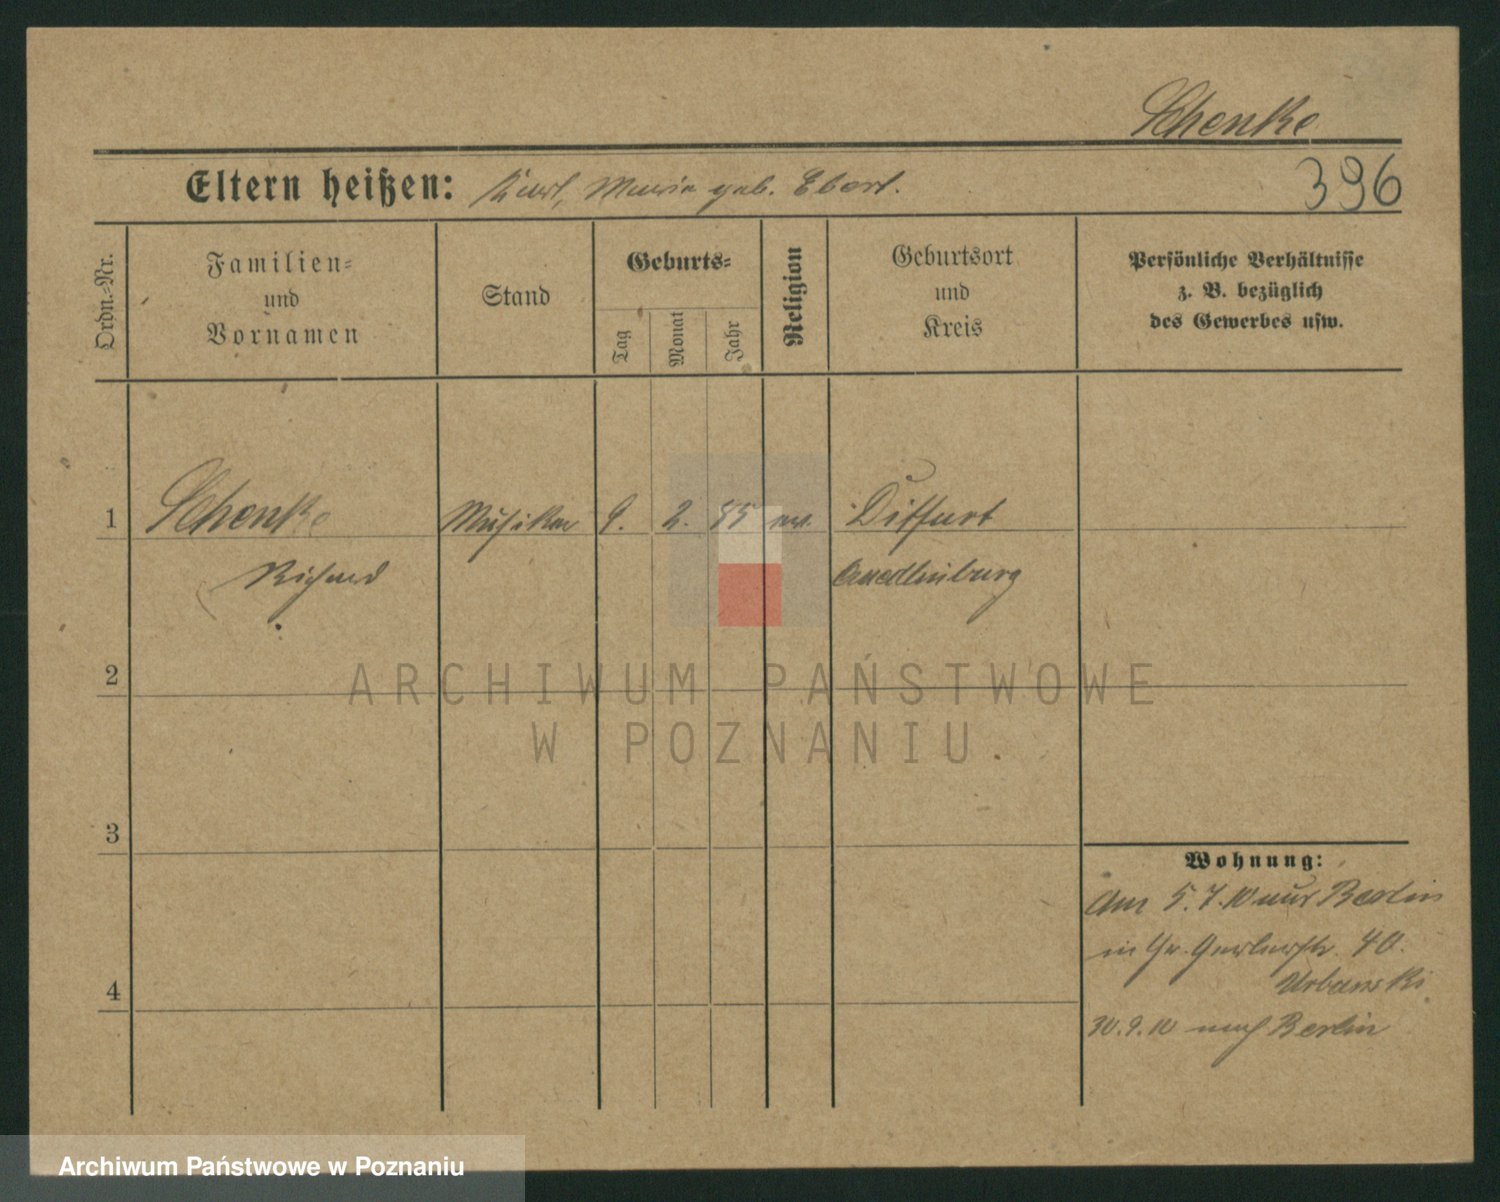 Schenke
Eltern heißen: Kurt, Marie geb. Ebert.
396
Ordn.-Nr.
Familien-
und
Vornamen
Stand
Geburts-
Tag
Monat
Jahr
Religion
Geburtsort
und
Kreis
Persönliche Verhältnisse
z. B. bezüglich
des Gewerbes usw.
1 Schenke Musiker 9. 2. 85 ev. Ditfurt
Richard Quedlinburg
2
ARCHIWUM PAŃSTWOWE
W POZNANIU
3
Wohnung:
Am 5.7.10 aus Berlin
in Gr. Gerberstr. 40.
Urbanski
4
30.9.10 nach Berlin
Archiwum Państwowe w Poznaniu